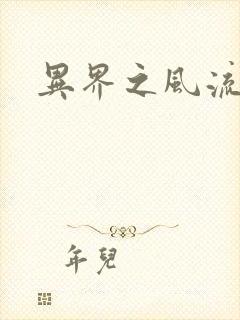 異界之風流
年兒